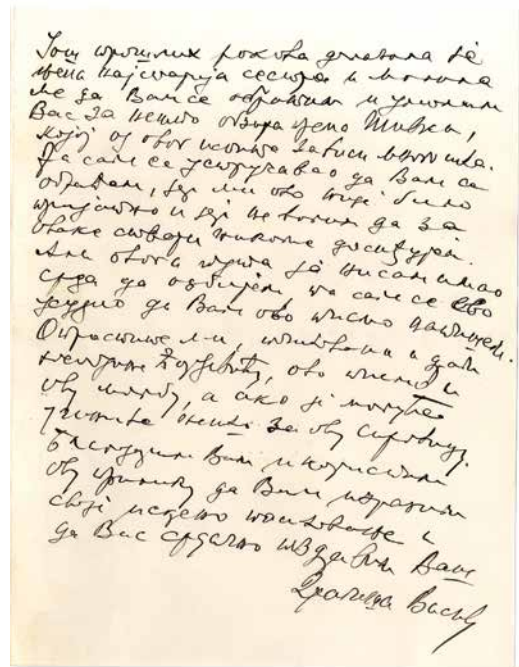 Још прошлих рокова долазила је
њена најстарија сестра и молила
ме да Вам се обратим и умолим
Вас за нешто обзира према
којој од овог испита зависи много шта.
Ја сам се устручавао да Вам се
обраћам, јер ми ово није било
пријатно и јер не волим да за
овакве ствари никоме досађујем.
Али овога пута је нисам имао
срца да одбијем па сам се ево
усудио да Вам ово писмо напишем.
Опростите ми, поштовани и драги
господине ово писмо и
ову молбу, а ако је могуће
учините нешто за ову сиротицу.
Благодарим Вам и користим
ову прилику да Вам изразим
своје искрено поштовање и
да Вас срдачно поздравим Ваш
Драгиша Васић